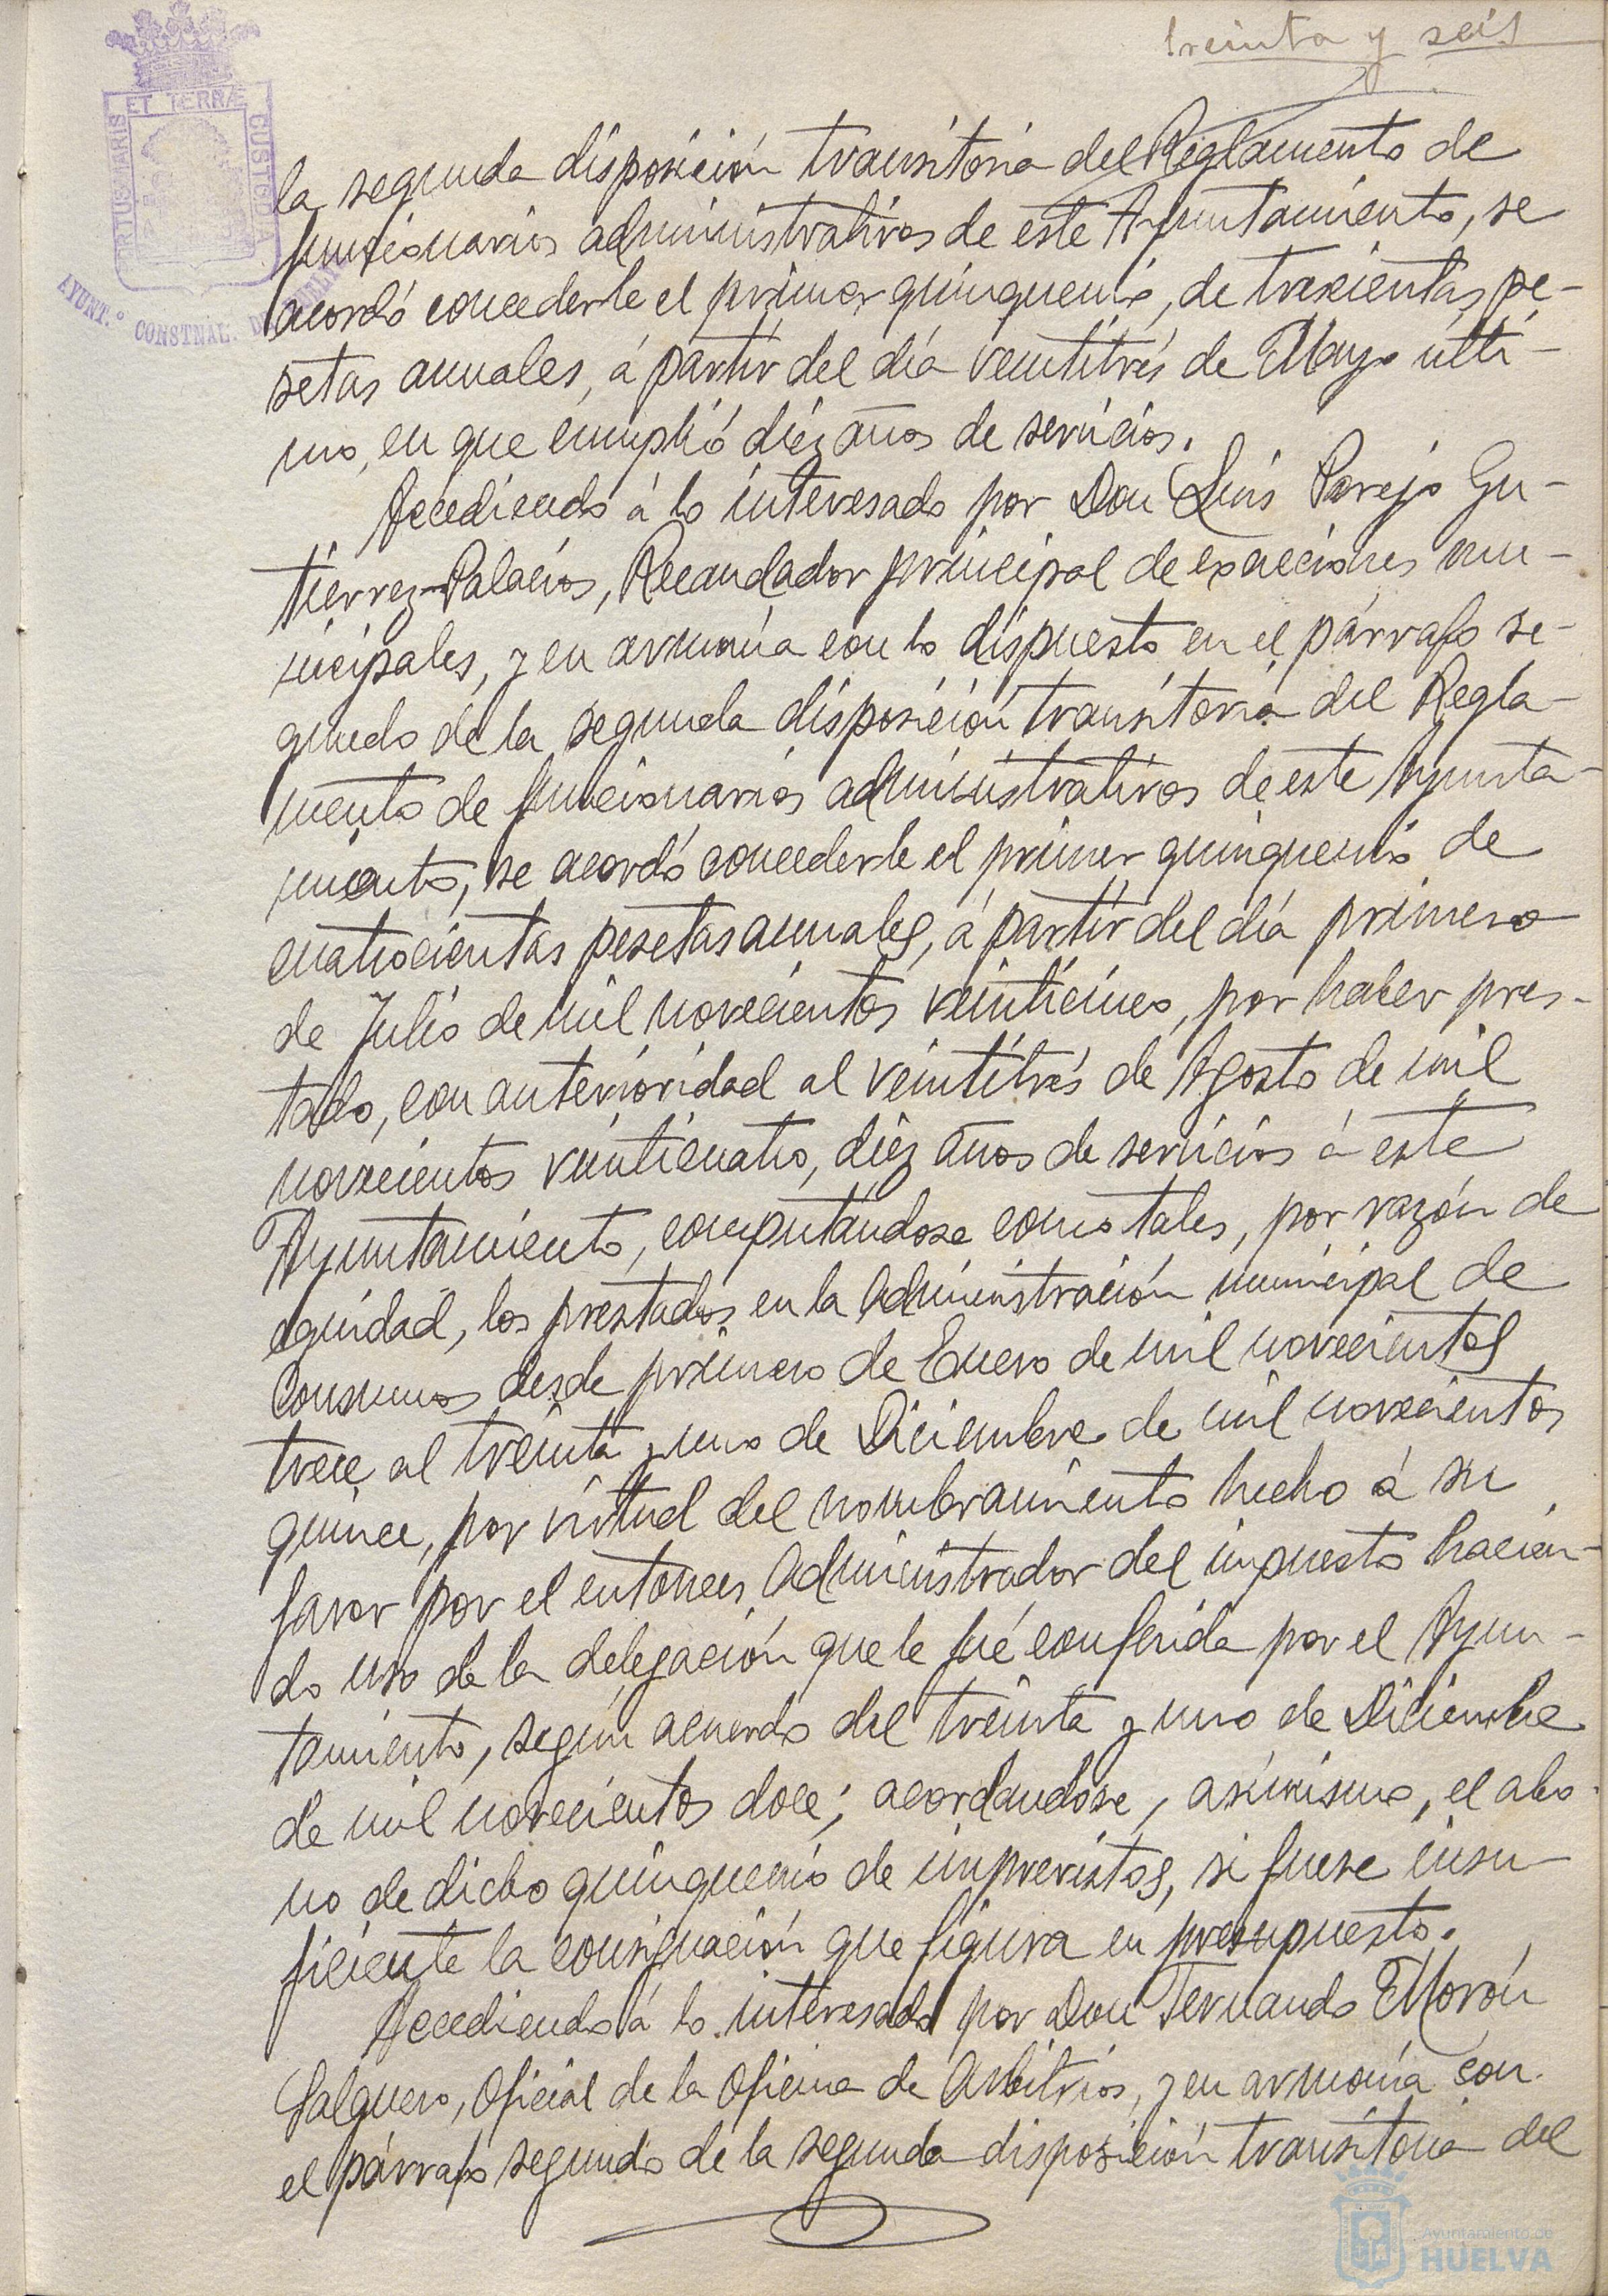 treinta y seis
ET TERRÆ
PORTUS MARIS
CUSTODIA
AYUNT.º CONSTNAL. DE HUELVA
la segunda disposición transitoria del Reglamento de
funcionarios administrativos de este Ayuntamiento, se
acordó concederle el primer quinquenio, de trescientas pe-
setas anuales, á partir del día veintitrés de Mayo últi-
mo, en que cumplió diez años de servicios.
Accediendo á lo interesado por Don Luis Parejo Gu-
tierrez-Palacios, Recaudador principal de exacciones mu-
nicipales, y en armonía con lo dispuesto en el párrafo se-
gundo de la segunda disposición transitoria del Regla-
mento de funcionarios administrativos de este Ayunta-
miento, se acordó concederle el primer quinquenio de
cuatrocientas pesetas anuales, á partir del día primero
de Julio de mil novecientos veinticinco, por haber pres-
tado, con anterioridad al veintitrés de Agosto de mil
novecientos veinticuatro, diez años de servicios á este
Ayuntamiento, computándose como tales, por razón de
equidad, los prestados en la Administración municipal de
Consumos desde primero de Enero de mil novecientos
trece al treinta y uno de Diciembre de mil novecientos
quince, por virtud del nombramiento hecho á su
favor por el entonces Administrador del impuesto hacien-
do uso de la delegación que le fué conferida por el Ayun-
tamiento, según acuerdo del treinta y uno de Diciembre
de mil novecientos doce; acordandose, asimismo, el abo-
no de dicho quinquenio de imprevistos, si fuese insu-
ficiente la consignación que figura en presupuesto.
Accediendo á lo interesado por Don Fernando Morón
Salguero, Oficial de la Oficina de Arbitrios, y en armonía con
el párrafo segundo de la segunda disposición transitoria del
Ayuntamiento de
HUELVA